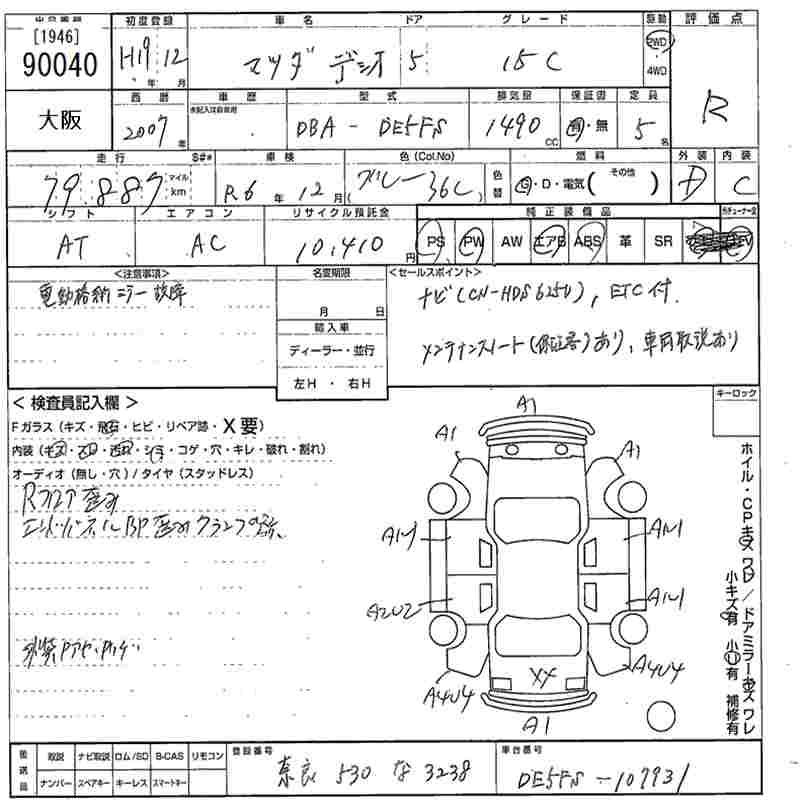 出品番号 初度登録 車名 ドア グレード 駆動 評価点
[1946]
90040 H19年 12月 マツダ デミオ 5 15C 2WD・4WD R
大阪 西暦 車歴 型式 排気量 保証書 定員
未記入は自家用
2007年 DBA-DE5FS 1490cc 有・無 5名
走行 S#* 車検 色(Col.No) 燃料 外装 内装
79,887 マイル km R6年 12月 グレー 36C 色替 G・D・電気( その他 ) D C
シフト エアコン リサイクル預託金 純正装備品
AT AC 10,410円 PS PW AW エアB ABS 革 SR TV
<注意事項> 名変期限 <セールスポイント>
電動格納ミラー故障 ナビ(CN-HDS625D), ETC付
月 日
輸入車
ディーラー・並行 メンテナンスノート(保証書)あり、車両取説あり
左H・右H
キーロック
<検査員記入欄>
Fガラス(キズ・飛石・ヒビ・リペア跡・X要)
内装(キズ・スレ・汚れ・シミ・コゲ・穴・キレ・破れ・割れ)
オーディオ(無し・穴)/タイヤ(スタッドレス)
Rフロア歪み
エンドパネルBP歪みクランプ跡
A1
A1 A1
A1U1 A1U1
A2U2 A1U1
A4U4 XX A4U4
A1
ホイル・CPキズ ワレ/ドアミラーキズ ワレ
小キズ有 小U有 補修有
後送品 取説 ナビ取説 ロム/SD B-CAS リモコン 登録番号 車台番号
ナンバー スペアキー キーレス スマートキー 奈良 530 な 3238 DE5FS-107931